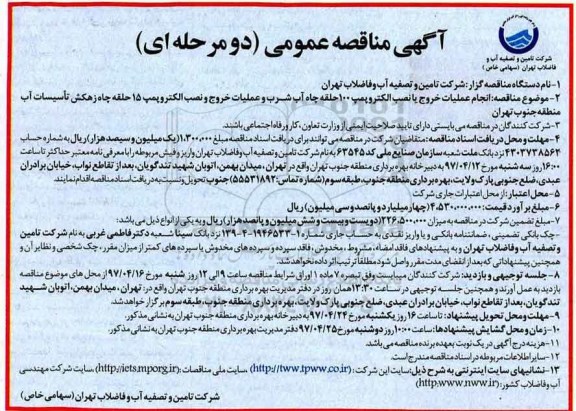 آگهی مناقصه عمومی (دو مرحله ای)
شرکت تامین و تصفیه آب و
فاضلاب تهران (سهامی خاص)
۱- نام دستگاه مناقصه گزار: شرکت تامین و تصفیه آب و فاضلاب تهران
۲- موضوع مناقصه: انجام عملیات خروج یا نصب الکتروپمپ ۱۰۰ حلقه چاه آب شرب و عملیات خروج و نصب الکتروپمپ ۱۵ حلقه چاه زهکش تأسیسات آب
منطقه جنوب تهران
۳- شرکت کنندگان در مناقصه می بایستی دارای تایید صلاحیت ایمنی از وزارت تعاون، کار و رفاه اجتماعی باشند.
۴- مهلت و محل دریافت اسناد مناقصه: متقاضیان شرکت در مناقصه می توانند برای دریافت اسناد مناقصه مبلغ ۱,۳۰۰,۰۰۰ریال (یک میلیون و سیصد هزار) ریال به شماره حساب
۴۳۰۳۷۳۸۵۶۲ نزد بانک ملت شعبه سازمان صنایع ملی کد ۶۳۵۴۵ به نام شرکت تامین و تصفیه آب و فاضلاب تهران واریز و فیش مربوطه را با معرفی نامه معتبر حداکثر تا ساعت
۱۶:۰۰ روز سه شنبه مورخ ۹۷/۰۴/۱۲ به دبیرخانه بهره برداری منطقه جنوب تهران واقع در تهران، میدان بهمن، اتوبان شهید تندگویان، بعد از تقاطع نواب، خیابان برادران
عبدی، ضلع جنوبی پارک ولایت، بهره برداری منطقه جنوب، طبقه سوم (شماره تماس: ۵۵۵۳۱۸۹۲) جنوب تحویل و نسبت به دریافت اسناد مناقصه اقدام نمایند.
۵- محل اعتبار: از محل اعتبارات جاری می باشد.
۶- مبلغ برآورد قیمت: ۴,۵۳۰,۰۰۰,۰۰۰ (چهار میلیارد و پانصد و سی میلیون) ریال
۷- مبلغ تضمین شرکت در مناقصه به میزان ۲۲۶,۵۰۰,۰۰۰ (دویست و بیست و شش میلیون و پانصد هزار) ریال و به یکی از انواع ذیل می باشد:
چک بانکی تضمینی، ضمانتنامه بانکی و یا واریز نقدی به حساب نزد بانک سینا شعبه دکتر فاطمی غربی به نام شرکت تامین
و تصفیه آب و فاضلاب تهران و به پیشنهادهای فاقد امضاء، مشروط، مخدوش، فاقد سپرده و سپرده های مخدوش یا سپرده های کمتر از میزان مقرر، چک شخصی و نظایر آن و
همچنین پیشنهاداتی که بعد از انقضای مدت مقرر واصل شود مطلقاً ترتیب اثر داده نخواهد شد.
۸- جلسه توجیهی و بازدید: شرکت کنندگان میبایست وفق تبصره ۷ ماده ۱ اوراق شرایط مناقصه ساعت ۹ الی ۱۲ روز شنبه مورخ ۹۷/۰۴/۱۶ از محل های موضوع مناقصه
بازدید به عمل آورند و همچنین جلسه توجیهی در ساعت ۱۳:۳۰ همان روز در دفتر مدیریت بهره برداری منطقه جنوب تهران واقع در: تهران، میدان بهمن، اتوبان شهید
تندگویان، بعد از تقاطع نواب، خیابان برادران عبدی، ضلع جنوبی پارک ولایت، بهره برداری منطقه جنوب، طبقه سوم برگزار خواهد شد.
۹- مهلت و محل تحویل پیشنهاد: تا ساعت ۱۶ روز یکشنبه مورخ ۹۷/۰۴/۲۴ به دبیرخانه بهره برداری منطقه جنوب تهران به نشانی مذکور.
۱۰- زمان و محل گشایش پیشنهادها: ساعت ۱۰:۰۰ روز دوشنبه مورخ ۹۷/۰۴/۲۵ دفتر مدیریت بهره برداری منطقه جنوب تهران به نشانی مذکور.
۱۱- هزینه درج آگهی در یک نوبت بعهده برنده مناقصه می باشد.
۱۲- سایر اطلاعات مربوطه در اسناد مناقصه مندرج است.
۱۳- نشانیهای سایت اینترنتی به شرح ذیل: سایت این شرکت: (http://tww.tpww.co.ir)، سایت ملی مناقصات: (http://iets.mporg.ir)، سایت شرکت مهندسی
آب و فاضلاب کشور: (http:www.nww.ir)
شرکت تامین و تصفیه آب و فاضلاب تهران (سهامی خاص)